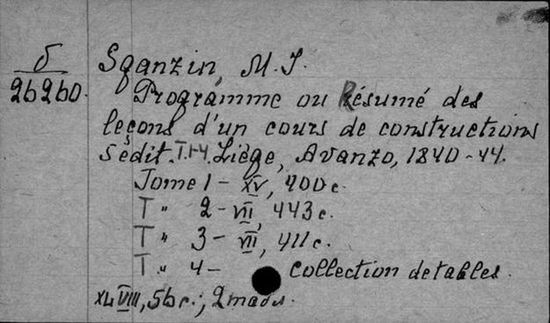 б
26260.
Sganzin, M. J.
Programme ou Résumé des
leçons d'un cours de constructions
5 édit. T.1-4. Liége, Avanzo, 1840-44.
Tome 1 - XV, 400 c.
T " 2 - VII, 443 c.
T " 3 - VII, 411 c.
T " 4 - Collection de tables.
XLVIII, 56 c.;